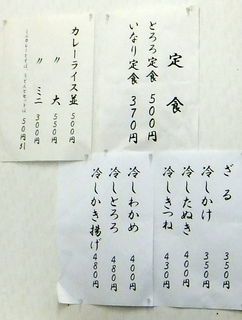 定食
とろろ定食 500円
いなり定食 370円
カレーライス並 500円
〃 大 550円
〃 ミニ 300円
50円引
ざる 350円
冷しかけ 350円
冷したぬき 400円
冷しきつね 430円
冷しわかめ 400円
冷しとろろ 480円
冷しかき揚げ 480円